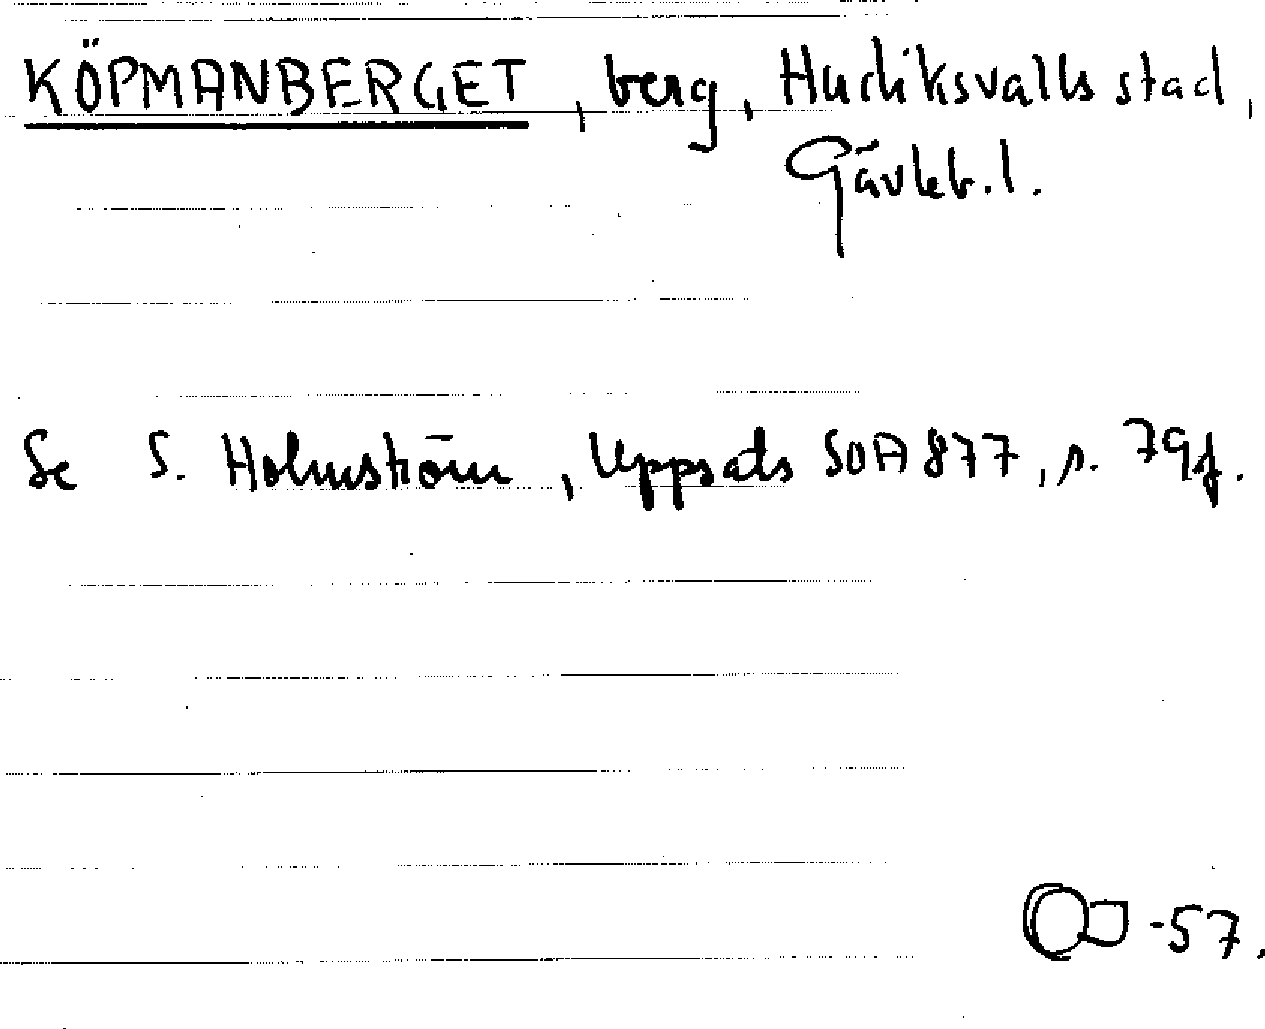 KÖPMANBERGET, berg, Hudiksvalls stad,
Gävleb.l.
Se S. Holmström, Uppsala SOA 877, s. 79f.
-57.